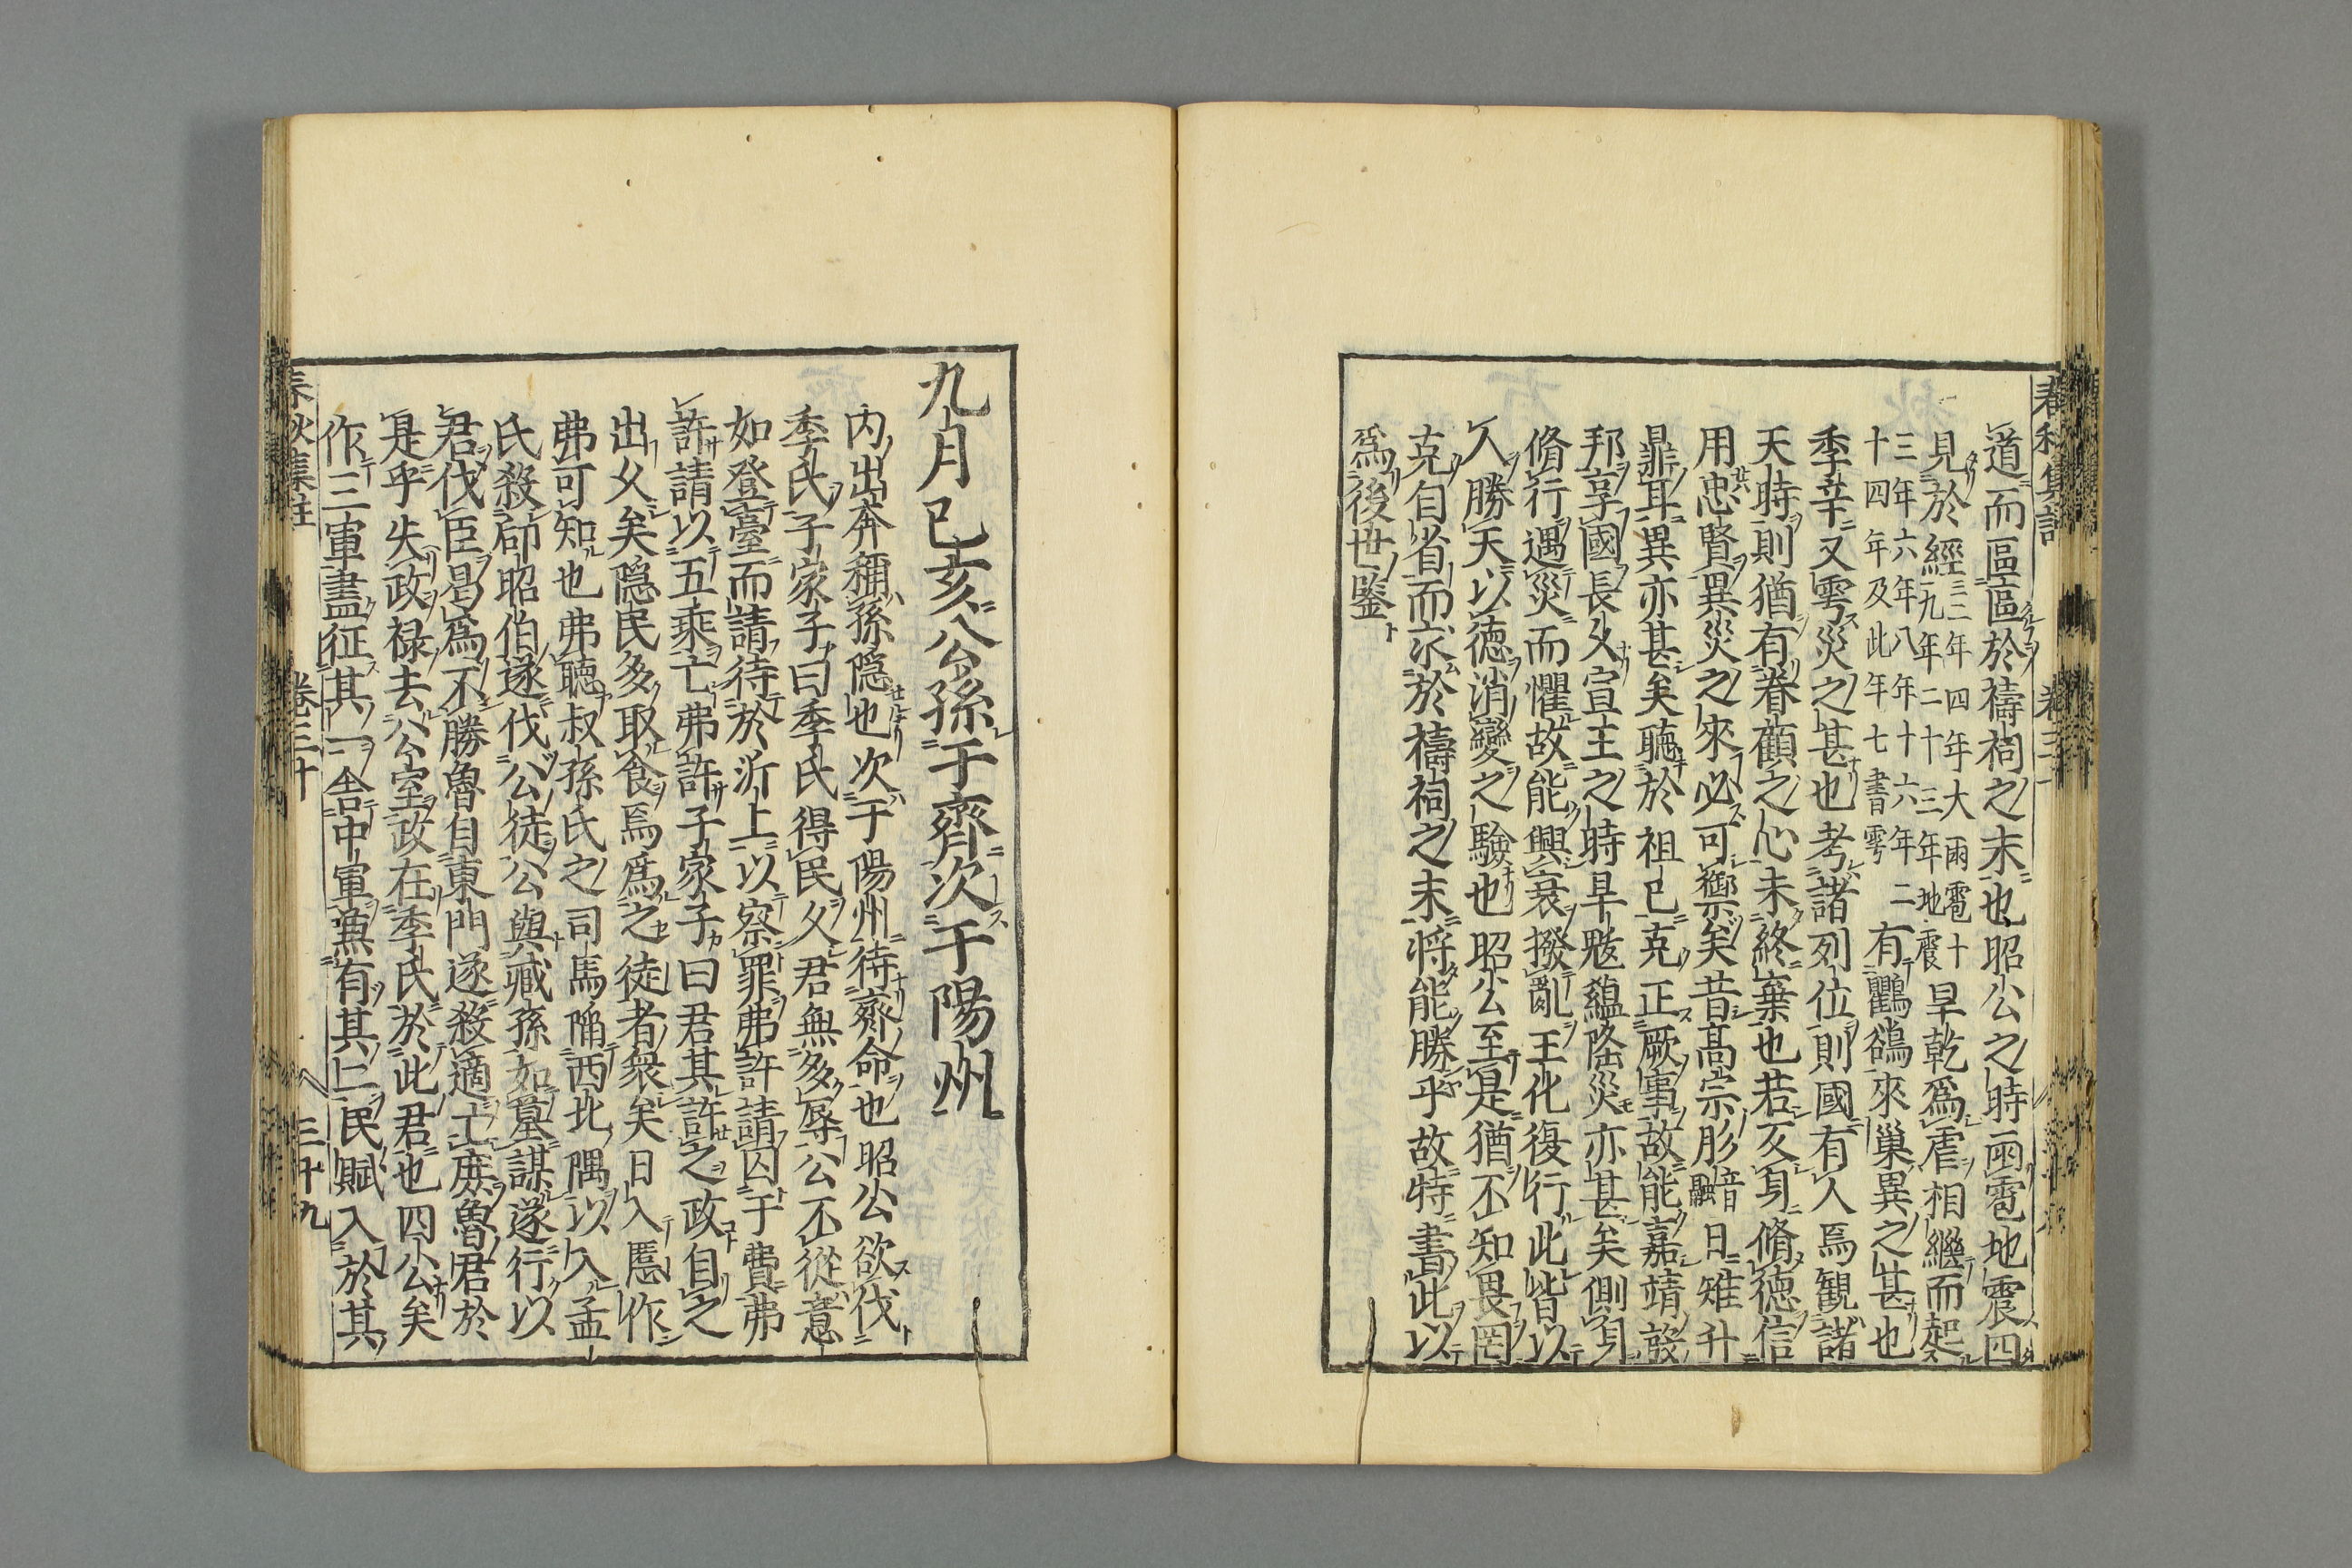 道而區區於禱祠之末也昭公之時雨雹地震四
見於經三二年四年大雨雹十九年二十三年地震旱乾爲虐相繼而起
三年六年八年十六年二十四年及此年七書雩有鸜鵒來巢異之甚也
季辛又雩災之甚也考諸列位則國有人焉觀諸
天時則猶有眷顧之心未終棄也若反身脩德信
用忠賢異災之來必可禦矣昔髙宗肜音融日雉升
鼎耳異亦甚矣聽於祖已克正厥事故能嘉靖殷
邦享國長久宣王之時旱魃蘊隆災亦甚矣側身
脩行遇災而懼故能興衰撥亂王化復行此皆以
人勝天以德消變之驗也昭公至是猶不知畏罔
克自省而求於禱祠之末将能勝乎故特書此以
爲後世鑒
春秋集註 卷三十
九月已亥公孫于齊次于陽州
内出奔稱孫隠也次于陽州待齊命也昭公欲伐
季氏子家子曰季氏得民久君無多辱公不從意
如登臺而請待於沂上以察罪弗許請囚于費弗
許請以五乘亡弗許子家子曰君其許之政自之
出久矣隠民多取食焉爲之徒者衆矣日入慝作
弗可知也弗聽叔孫氏之司馬陷西北隅以入孟
氏殺郈昭伯遂伐公徒公與臧孫如墓謀遂行以
君伐臣曷爲不勝魯自東門遂殺適立庶魯君於
是乎失政禄去公室政在季氏於此君也四公矣
作三軍盡征其一舎中軍兼有其二民賦入於其
春秋集註 卷三十 三十九